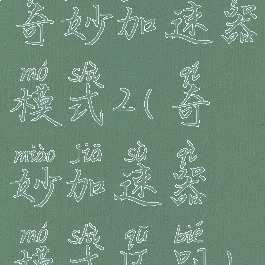 奇妙加速器
mó shì qí
模式2(奇
miào jiā sù qì
妙加速器
mó shì qū bié
模式区别)